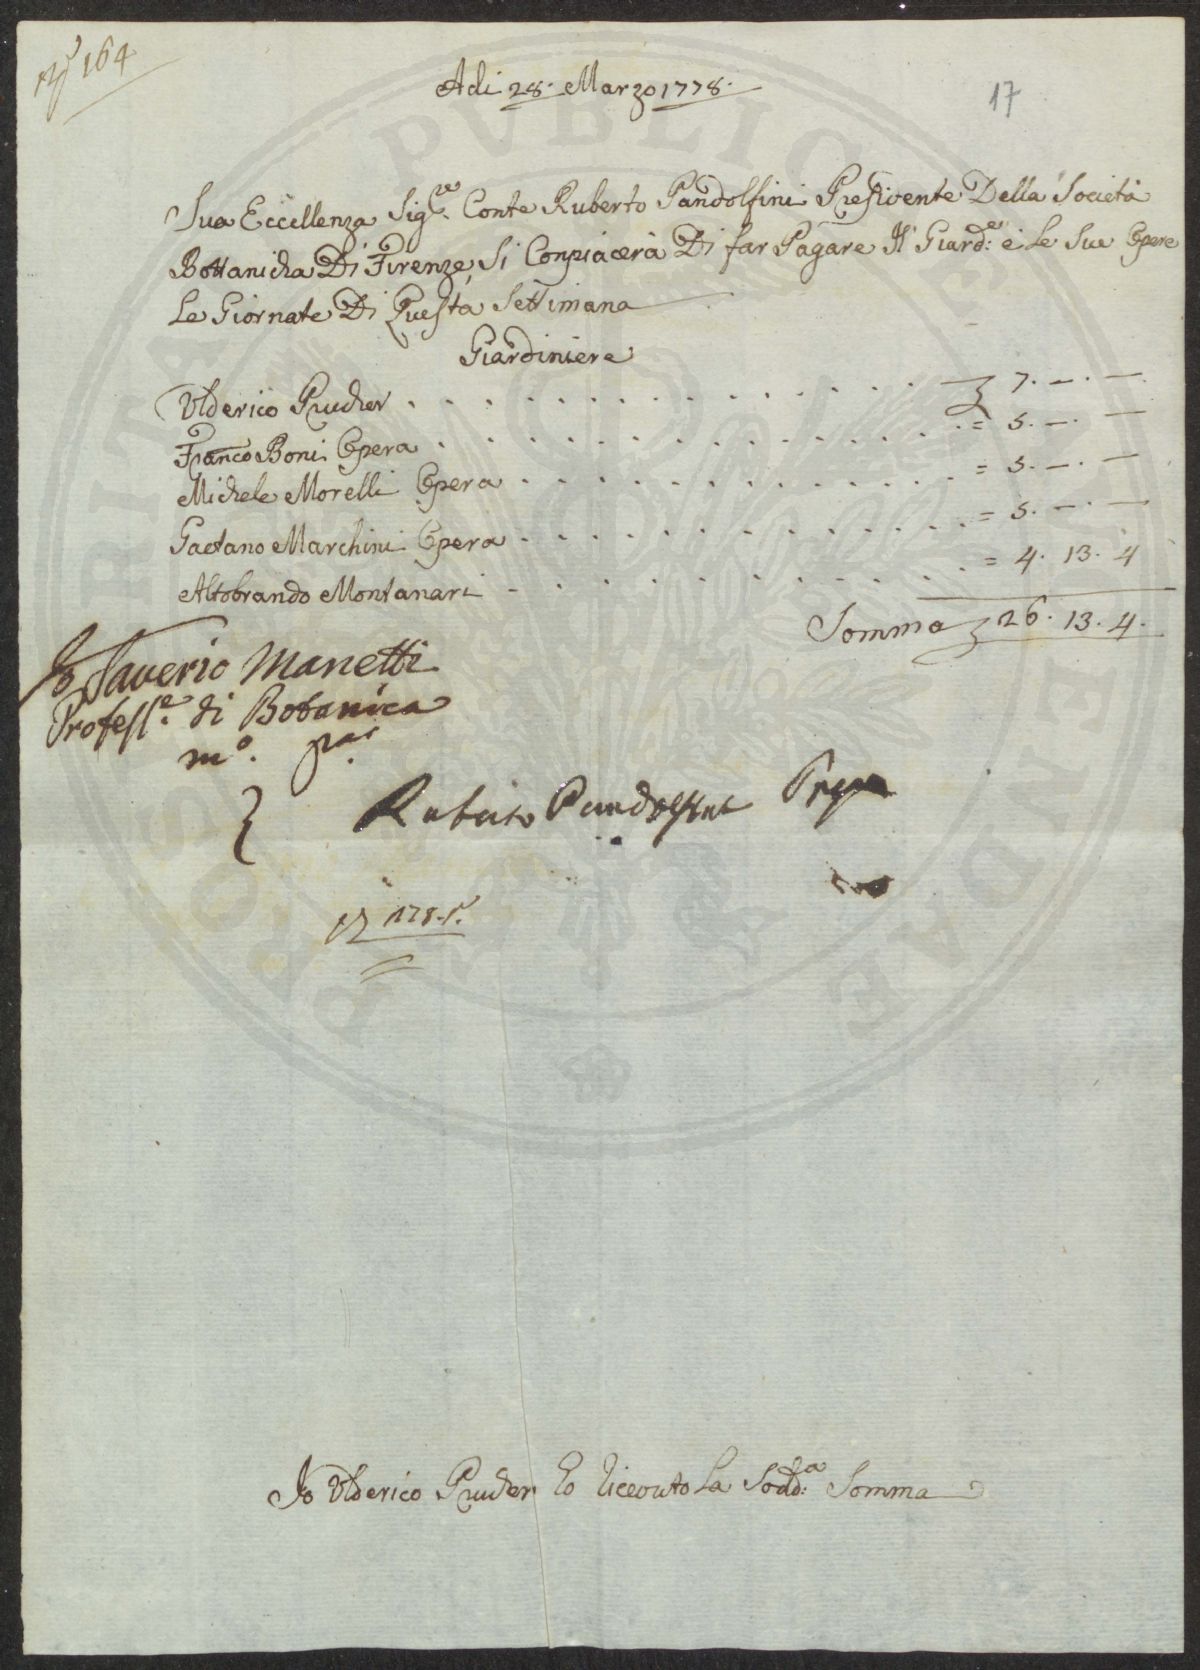 N° 164
Adi 28. Marzo 1778.
17
Sua Eccellenza Sig.re Conte Ruberto Pandolfini Presidente Della Società
Bottanicha Di Firenze, Si Conpiacerà Di far Pagare Il Giard.e e Le Sue Opere
Le Giornate Di Questa Settimana
Giardiniere
Ulderico Prucher . . . . . . . . . . . . . . 7. —. —
Franco Boni Opera . . . . . . . . . . . . . = 5. —. —
Michele Morelli Opera . . . . . . . . . . . = 5. —. —
Gaetano Marchini Opera . . . . . . . . . . = 5. —. —
Altobrando Montanari . . . . . . . . . . . = 4. 13. 4
Somma 26. 13. 4.
Io Saverio Manetti
Profess.e di Botanica
m.o p.a
Ruberto Pandolfini
178.
Io Ulderico Prucher ho riceouto La Sodd.a Somma
PVBLICAE